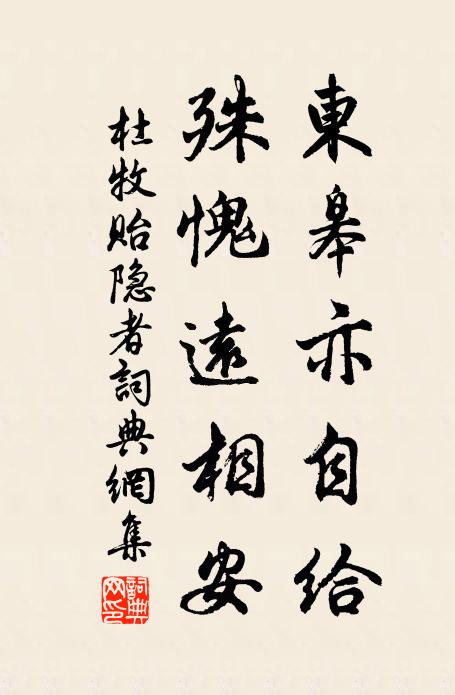 東皋亦自給
殊愧遠相安
杜牧貽隐者詞典網集